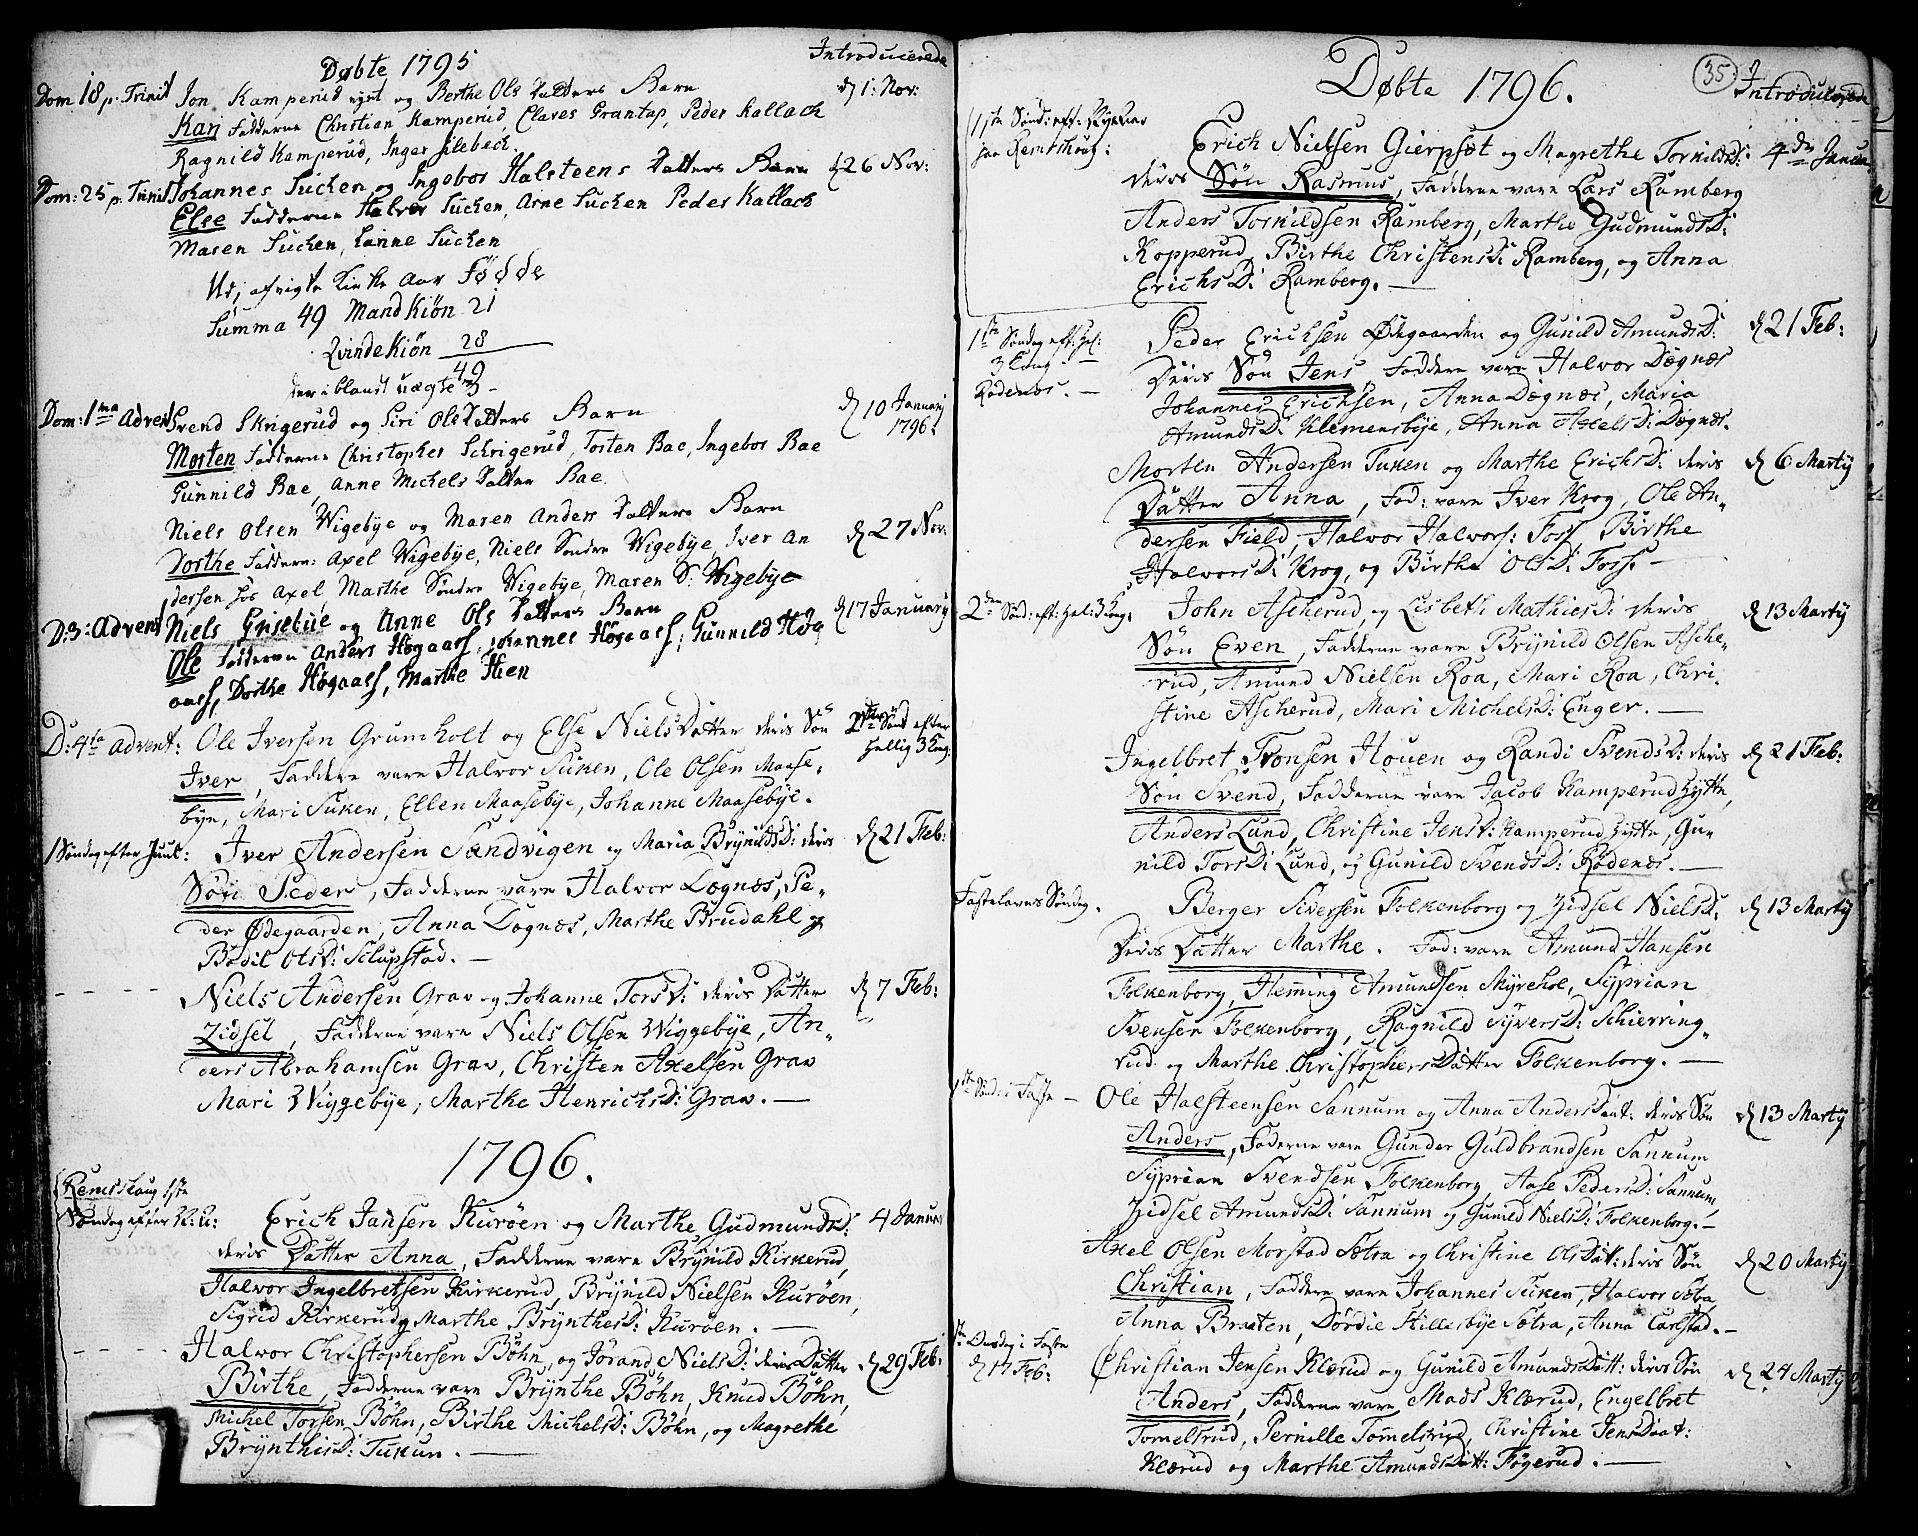 Døbte 1795
Introducerede
Dom 18 p. Trinit Jon Kamperud og Berthe Ols Datters Barn d 1: Nov:
Kari Fadderne Christian Kamperud, Claves Grantap, Peder Kallach
Ragnild Kamperud, Inger Silebech.
Dom: 25 p. Trinit Johannes Tuchen og Ingebor Halsteens Datters Barn d 26 Nov:
Else Fadderne Halvor Tuchen, Arne Tuchen Peder Kallach
Maren Tuchen, Tuchen
Udj afvigte Kirke Aar Fødde
Summa 49 Mandkiøn 21
Qvindekiøn 28
49
der iblandt uægte 3
Dom: 1ma Advent Svend Skrigerud og Siri Ols Datters Barn d 10 Januarj
1796:
Morten Fadderne Christopher Schrigerud, Torsten Bae, Ingebor Bae
Gunnild Bae, Anne Michels Datter Bae
Niels Olsen Wigebye og Maren Anders Datters Barn d 27 Nov:
Dorthe Fadderne: Axel Wigebye, Niels Søndre Wigebye, Iver An
dersen hos Axel, Marthe Søndre Wigebye, Maren S: Wigebye
D:3: Advent Niels Grisebue og Anne Ols Datters Barn d 17 January
Ole Fadderne Anders Høgaas, Johannes Høgaas, Gunnild Høg
aas, Dorthe Høgaas, Marthe Hien
D: 4ta Advent: Ole Iversen Grumholt og Else Niels Datter deris Søn 2den Sønd efter
Hellig 3 Kong:
Iver, Faddere vare Halvor Tuken, Ole Olsen Maase,
bye, Mari Tuken, Ellen Maasebye, Johanne Maasebye.
1 Søndag efter Juul: Iver Andersen Sandvigen og Maria Brynilds D: deris d 21 Feb:
Søn Peder, Fadderne vare Halvor Døgnæs, Pe-
der Ødegaarden, Anna Døgnæs, Marthe Brudahl og
Bodil Ols D: Slupstad. —
Niels Andersen Grav og Johanne Tors D: deris Datter d 7 Feb:
Zidsel, Fadderne vare Niels Olsen Wiggebye, An-
ders Abrahamsen Grav, Christen Axelsen Grav
Mari Wiggebye, Marthe Henrichs D: Grav. —
1796.
Remskoug 1ste
Søndag efter N: A:
Erich Jansen Kurøen og Marthe Gudmunds D: 4 Januar
deris Datter Anna, Fadderne vare Brynild Kirkerud,
Halvor Ingelbretsen Kirkerud, Brynild Nielsen Kurøen,
Sigrid Kirkerud og Marthe Brynthes D: Kurøen. —
Halvor Christophersen Bøhn, og Jørand Niels D: deris Datter d 29 Feb:
Birthe, Fadderne vare Brynthe Bøhn, Knud Bøhn,
Michel Torsen Bøhn, Birthe Michels D: Bøhn, og Magrethe
Brynthis D: Tukun. —
Døbte 1796.
35
Introducerede
1ste Sønd: eft: Nye Aar
paa Remskoug:
Erich Nielsen Gierpsæt og Magrethe Torkilds D: 4 de Janua
deris Søn Rasmus, Fadderne vare Lars Ramberg
Anders Torkildsen Ramberg, Marthe Gudmunds D:
Kopperud, Birthe Christens D: Ramberg, og Anna
Erichs D: Ramberg. —
1ste Søndag eft: Hel:
3 Kong —
Rødenes. —
Peder Erichsen Ødegaarden og Gunild Amunds D: d 21 Feb:
Deris Søn Jens, Faddere vare Halvor Døgnæs
Johannes Erichsen, Anna Døgnæs, Maria
Amunds D: Klemensbye, Anna Axels D: Døgnæs.
Morten Andersen Tuken og Marthe Erichs D: deris d 6 Marty
Datter Anna, Fad: vare Iver Krog, Ole An-
dersen Field, Halvor Halvors: Foss, Birthe
Halvors D: Krog, og Birthe Ols D: Foss. —
2den Sønd: eft: Hel: 3 Kong: John Ascherud, og Lisbeth Mathies D: deris d 13 Marty
Søn Even, Fadderne vare Brynild Olsen Asche-
rud, Amund Nielsen Roa, Mari Roa, Chri-
stine Ascherud, Mari Michels D: Enger. —
Ingelbret Tronsen Houen og Randi Svends D: deris d 21 Feb:
Søn Svend, Fadderne vare Jacob Kamperud Hytte,
Anders Lund, Christine Jens D: Kamperud Hytte, Gu-
nild Tors D: Lund, og Gunild Svends D: Rødenes. —
Fastelavns Søndag. Berger Siversen Folkenborg og Zidsel Niels D: d 13 Marty
Deris Datter Marthe. Fad: vare Amund Hansen
Folkenborg, Hemming Amundsen Myrehol, Syprian
Svensen Folkenborg, Ragnild Syvers D: Schierring-
rud og Marthe Christophers Datter Folkenborg. —
1ste Sønd: i Faste — Ole Halsteensen Sannum og Anna Anders Daat: deris Søn d 13 Marty
Anders, Fadderne vare Gunder Guldbrandsen Sannum
Syprian Svendsen Folkenborg, Aase Peders D: Sannum,
Zidsel Amunds D: Sannum og Gunild Niels D: Folkenborg. —
Axel Olsen Morstad Sætra og Christine Ols Dat: deris Søn d 20 Marty
Christian, Faddere vare Johannes Tuken, Halvor Sætra,
Anna Braaten, Dordie Hillesbye Sætra, Anna Carlstad. —
1ste Onsdag i Faste
d 17 Feb:
Christian Jensen Klærud og Gunild Amunds Datt: deris Søn d 24 Marty
Anders, Fadderne vare Mads Klærud, Engelbret
Tomelsrud, Pernille Tomelsrud, Christine Jens Daat:
Klærud og Marthe Amunds Datt: Føgerud. —